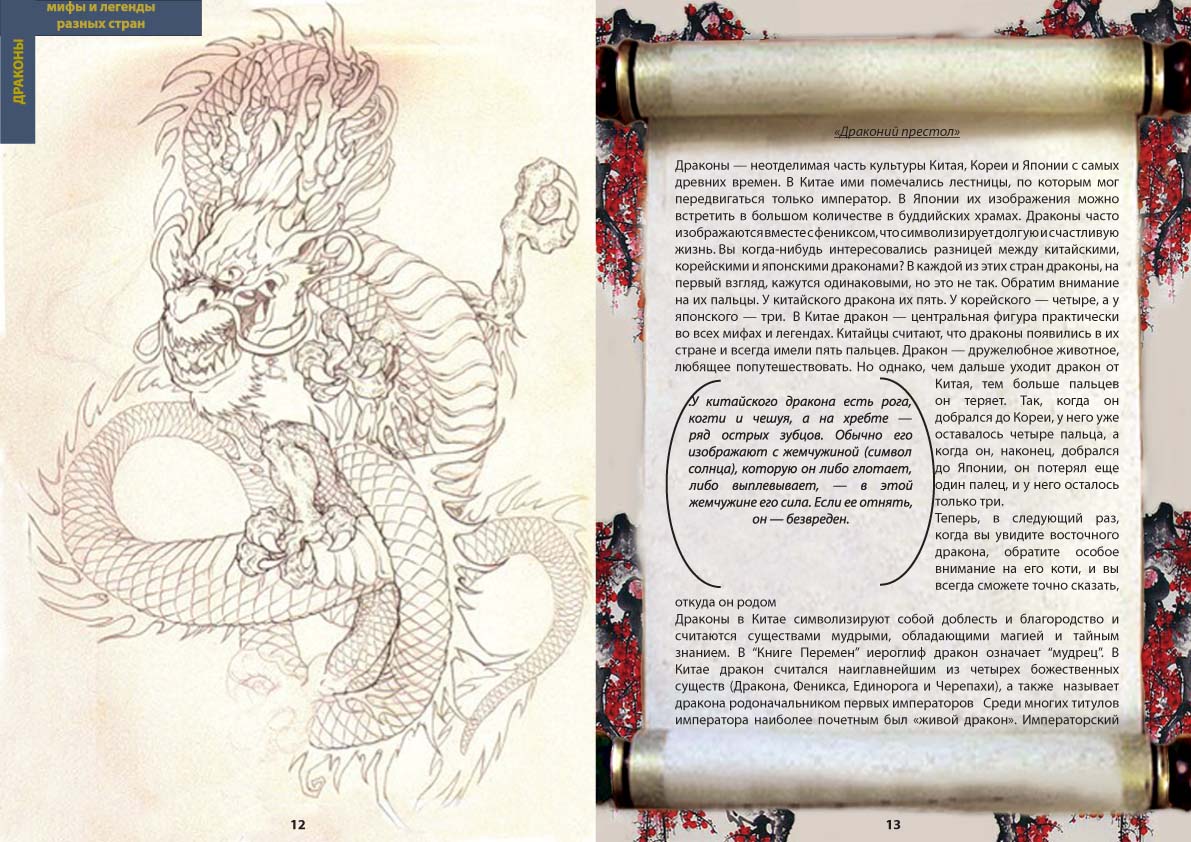 мифы и легенды
разных стран
ДРАКОНЫ
«Драконий престол»
Драконы — неотделимая часть культуры Китая, Кореи и Японии с самых
древних времен. В Китае ими помечались лестницы, по которым мог
передвигаться только император. В Японии их изображения можно
встретить в большом количестве в буддийских храмах. Драконы часто
изображаются вместе с фениксом, что символизирует долгую и счастливую
жизнь. Вы когда-нибудь интересовались разницей между китайскими,
корейскими и японскими драконами? В каждой из этих стран драконы, на
первый взгляд, кажутся одинаковыми, но это не так. Обратим внимание
на их пальцы. У китайского дракона их пять. У корейского — четыре, а у
японского — три. В Китае дракон — центральная фигура практически
во всех мифах и легендах. Китайцы считают, что драконы появились в их
стране и всегда имели пять пальцев. Дракон — дружелюбное животное,
любящее попутешествовать. Но однако, чем дальше уходит дракон от
Китая, тем больше пальцев
он теряет. Так, когда он
добрался до Кореи, у него уже
оставалось четыре пальца, а
когда он, наконец, добрался
до Японии, он потерял еще
один палец, и у него осталось
только три.
Теперь, в следующий раз,
когда вы увидите восточного
дракона, обратите особое
внимание на его коти, и вы
всегда сможете точно сказать,
откуда он родом
.У китайского дракона есть рога,
когти и чешуя, а на хребте —
ряд острых зубцов. Обычно его
изображают с жемчужиной (символ
солнца), которую он либо глотает,
либо выплевывает, — в этой
жемчужине его сила. Если ее отнять,
он — безвреден.
Драконы в Китае символизируют собой доблесть и благородство и
считаются существами мудрыми, обладающими магией и тайным
знанием. В “Книге Перемен” иероглиф дракон означает “мудрец”. В
Китае дракон считался наиглавнейшим из четырех божественных
существ (Дракона, Феникса, Единорога и Черепахи), а также называет
дракона родоначальником первых императоров Среди многих титулов
императора наиболее почетным был «живой дракон». Императорский
12
13